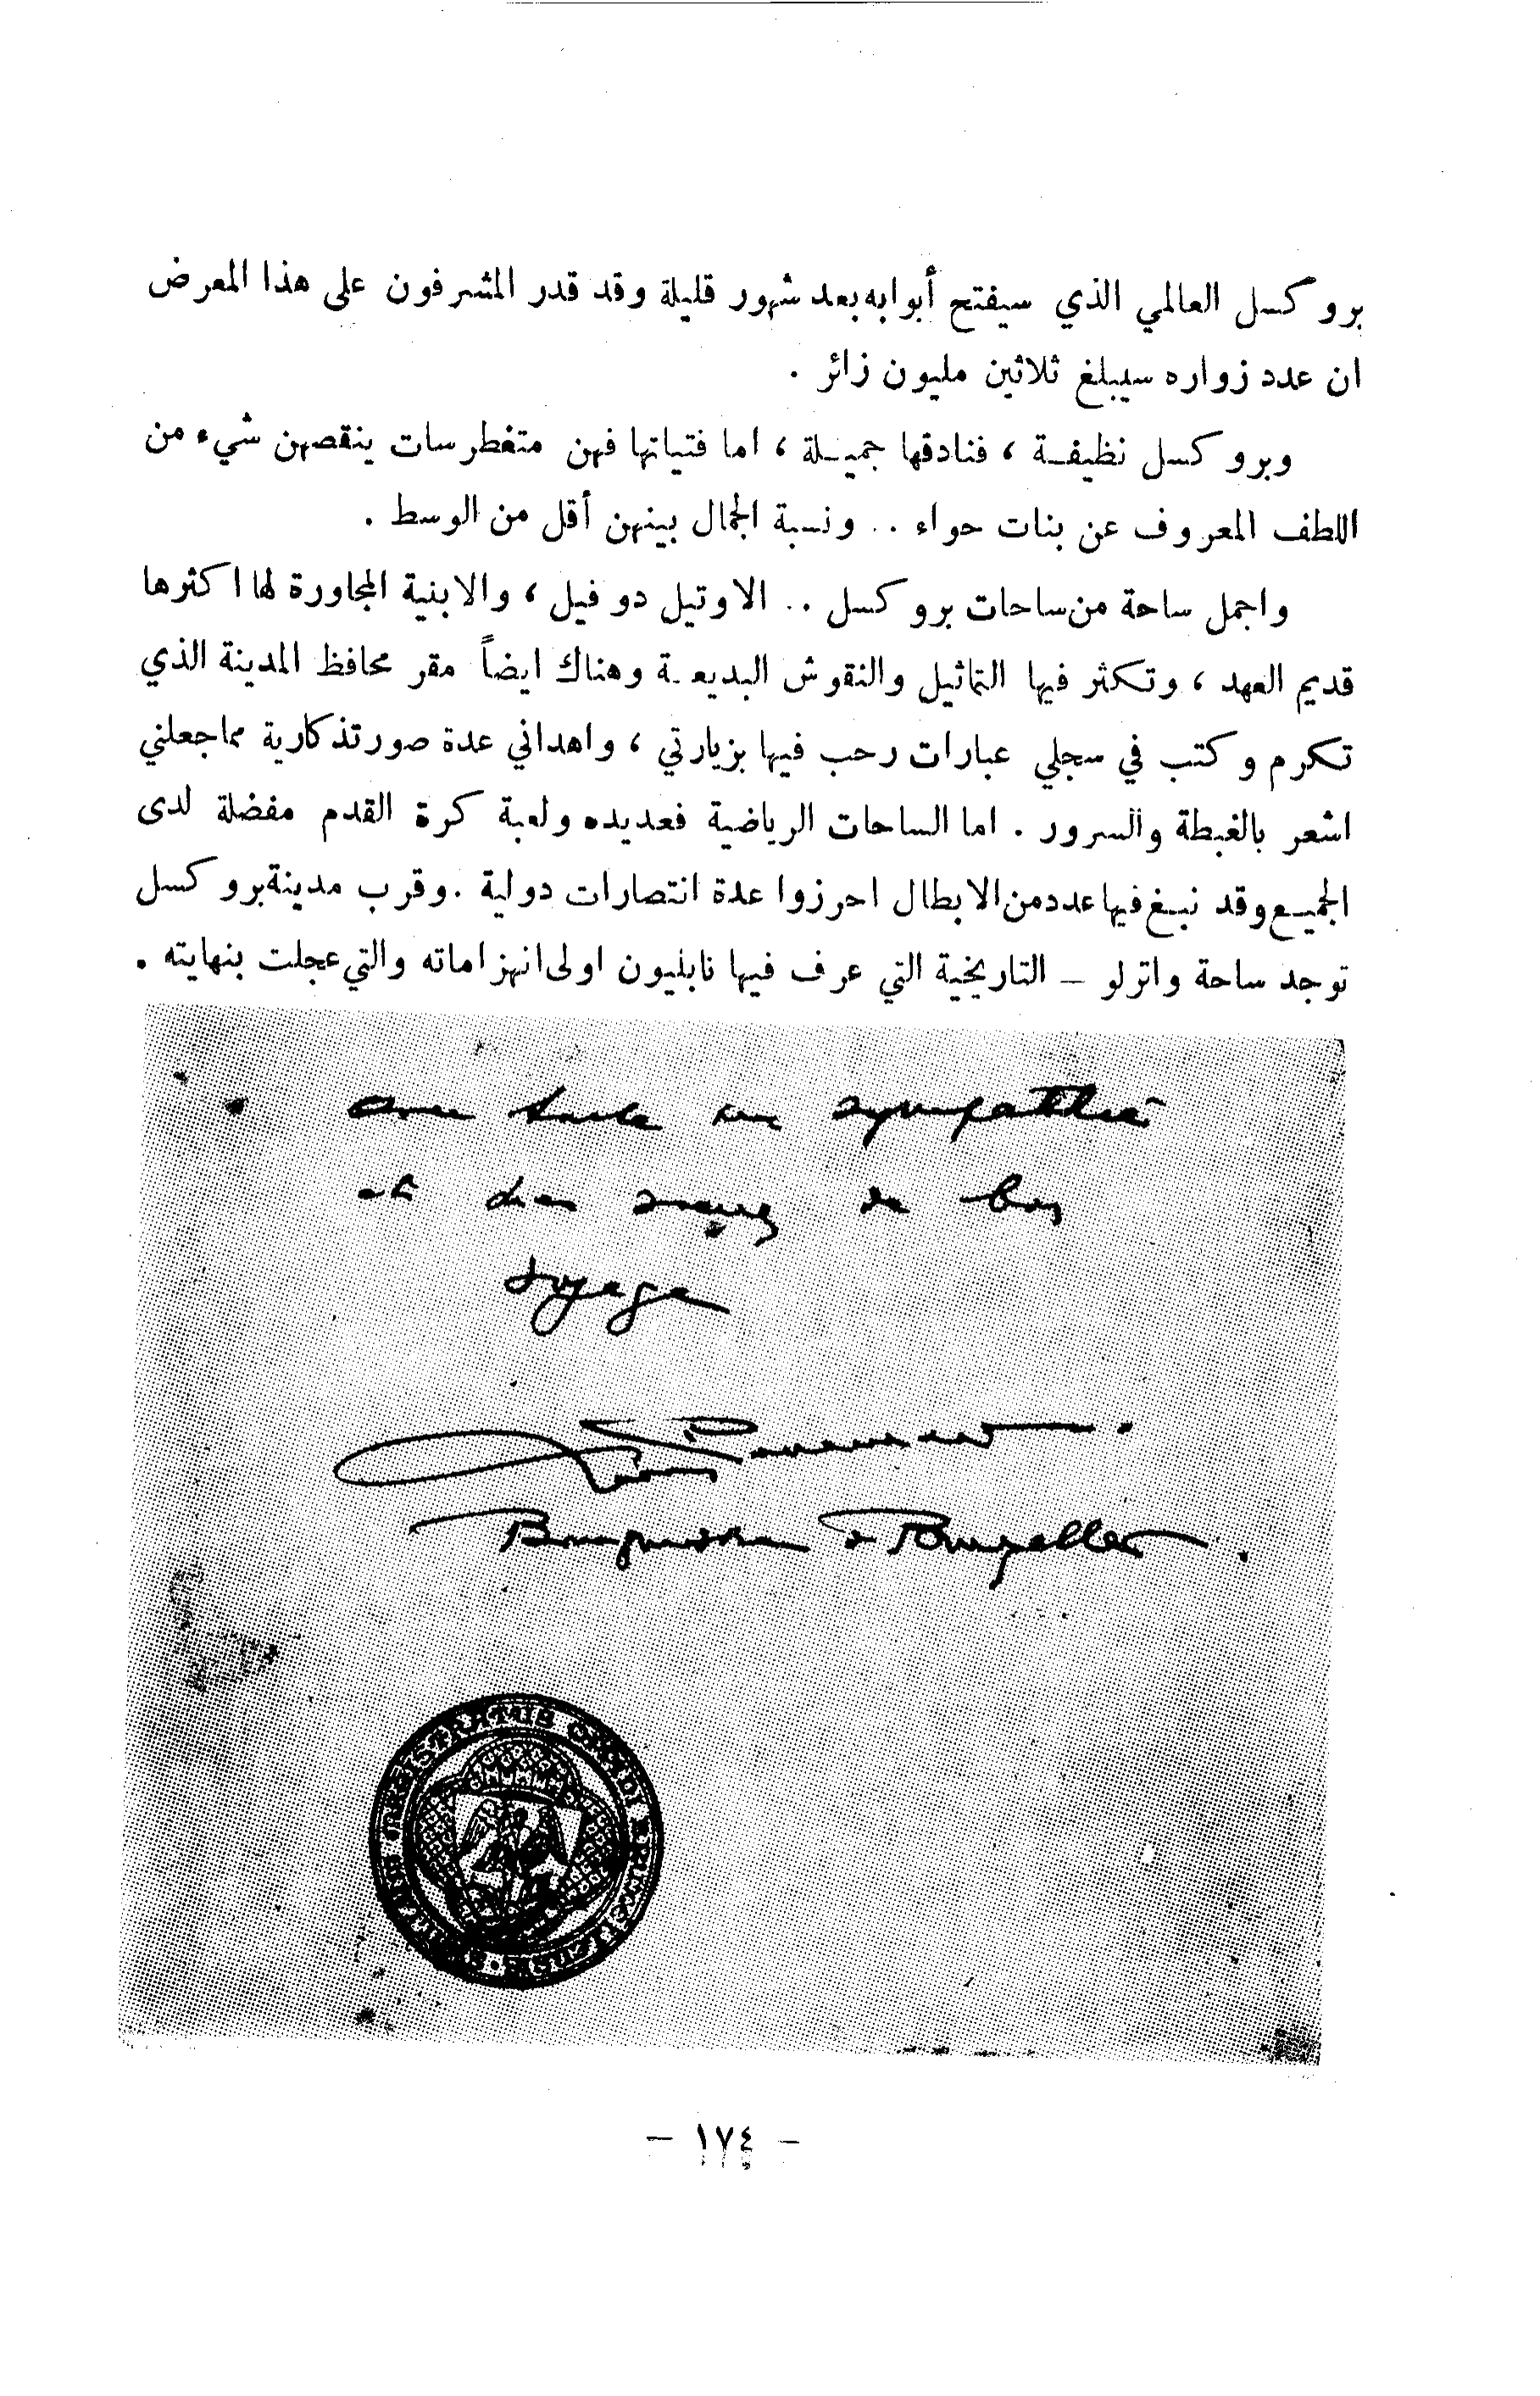 بروكسل العالمي الذي سيفتح أبوابه بعد شهور قليلة وقد قدر المشرفون على هذا المعرض
ان عدد زواره سيبلغ ثلاثين مليون زائر .
وبروكسل نظيفة ، فنادقها جميلة ، اما فتياتها فهن متغطرسات ينقصهن شيء من
اللطف المعروف عن بنات حواء .. ونسبة الجمال بينهن أقل من الوسط .
واجمل ساحة من ساحات بروكسل .. الاوتيل دو فيل ، والابنية المجاورة لها اكثرها
قديم العهد ، وتكثر فيها التماثيل والنقوش البديعة وهناك ايضاً مقر محافظ المدينة الذي
تكرم وكتب في سجلي عبارات رحب فيها بزيارتي ، واهداني عدة صور تذكارية مما جعلني
اشعر بالغبطة والسرور . اما الساحات الرياضية فعديده ولعبة كرة القدم مفضلة لدى
الجميع وقد نبغ فيها عدد من الابطال احرزوا عدة انتصارات دولية . وقرب مدينة بروكسل
توجد ساحة واترلو – التاريخية التي عرف فيها نابليون اولى انهزاماته والتي عجلت بنهايته .
avec toute ma sympathie
et mes vœux de bon
voyage
Bourgmestre de Bruxelles.
– ١٧٤ –